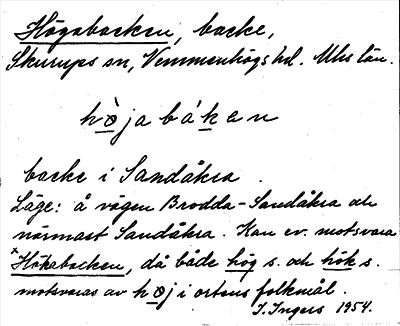 Högabacken, backe,
Skurups sn, Vemmenhögs hd. Mhs län.
hø̀ja báken
backe i Sandåkra.
Läge: å vägen Brodda-Sandåkra och
närmast Sandåkra. Kan ev. motsvara
*Hökabacken, då både hög s. och hök s.
motsvaras av høj i ortens folkmål.
I. Ingers 1954.